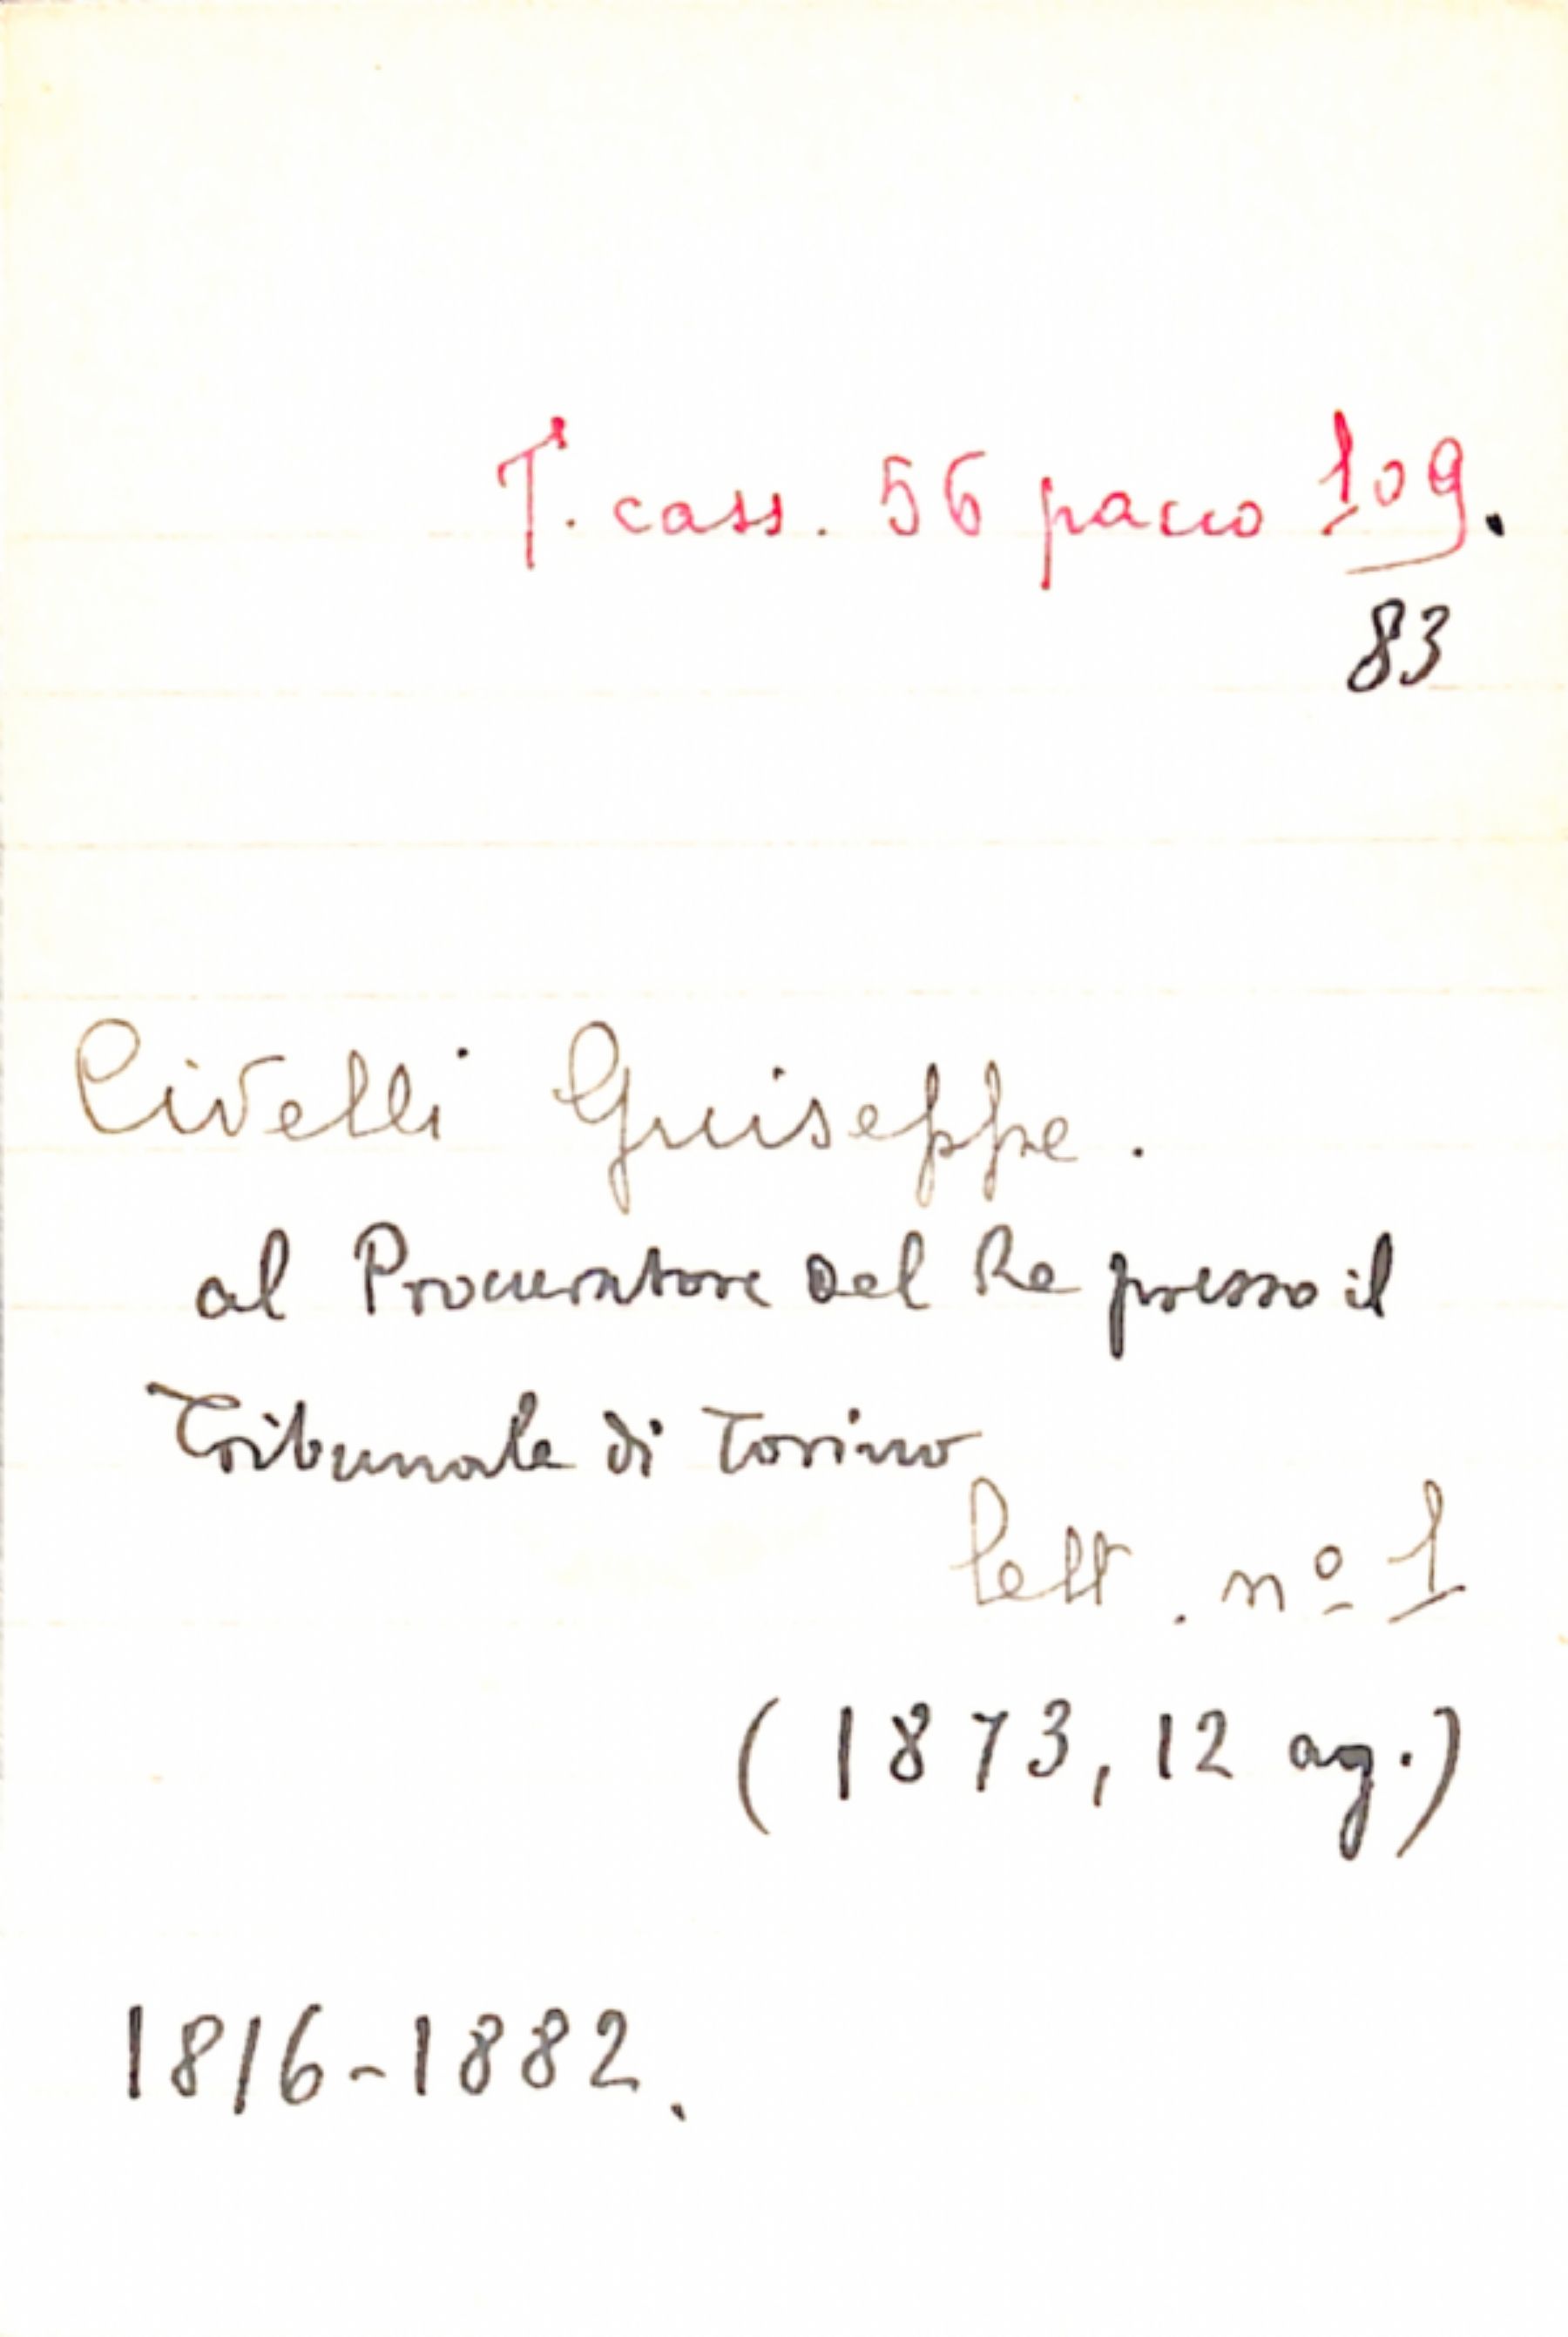 T. cass. 56 pacco 109.
83
Civelli Giuseppe.
al Procuratore del Re presso il
Tribunale di Torino
lett. nº 1
(1873, 12 ag.)
1816-1882.